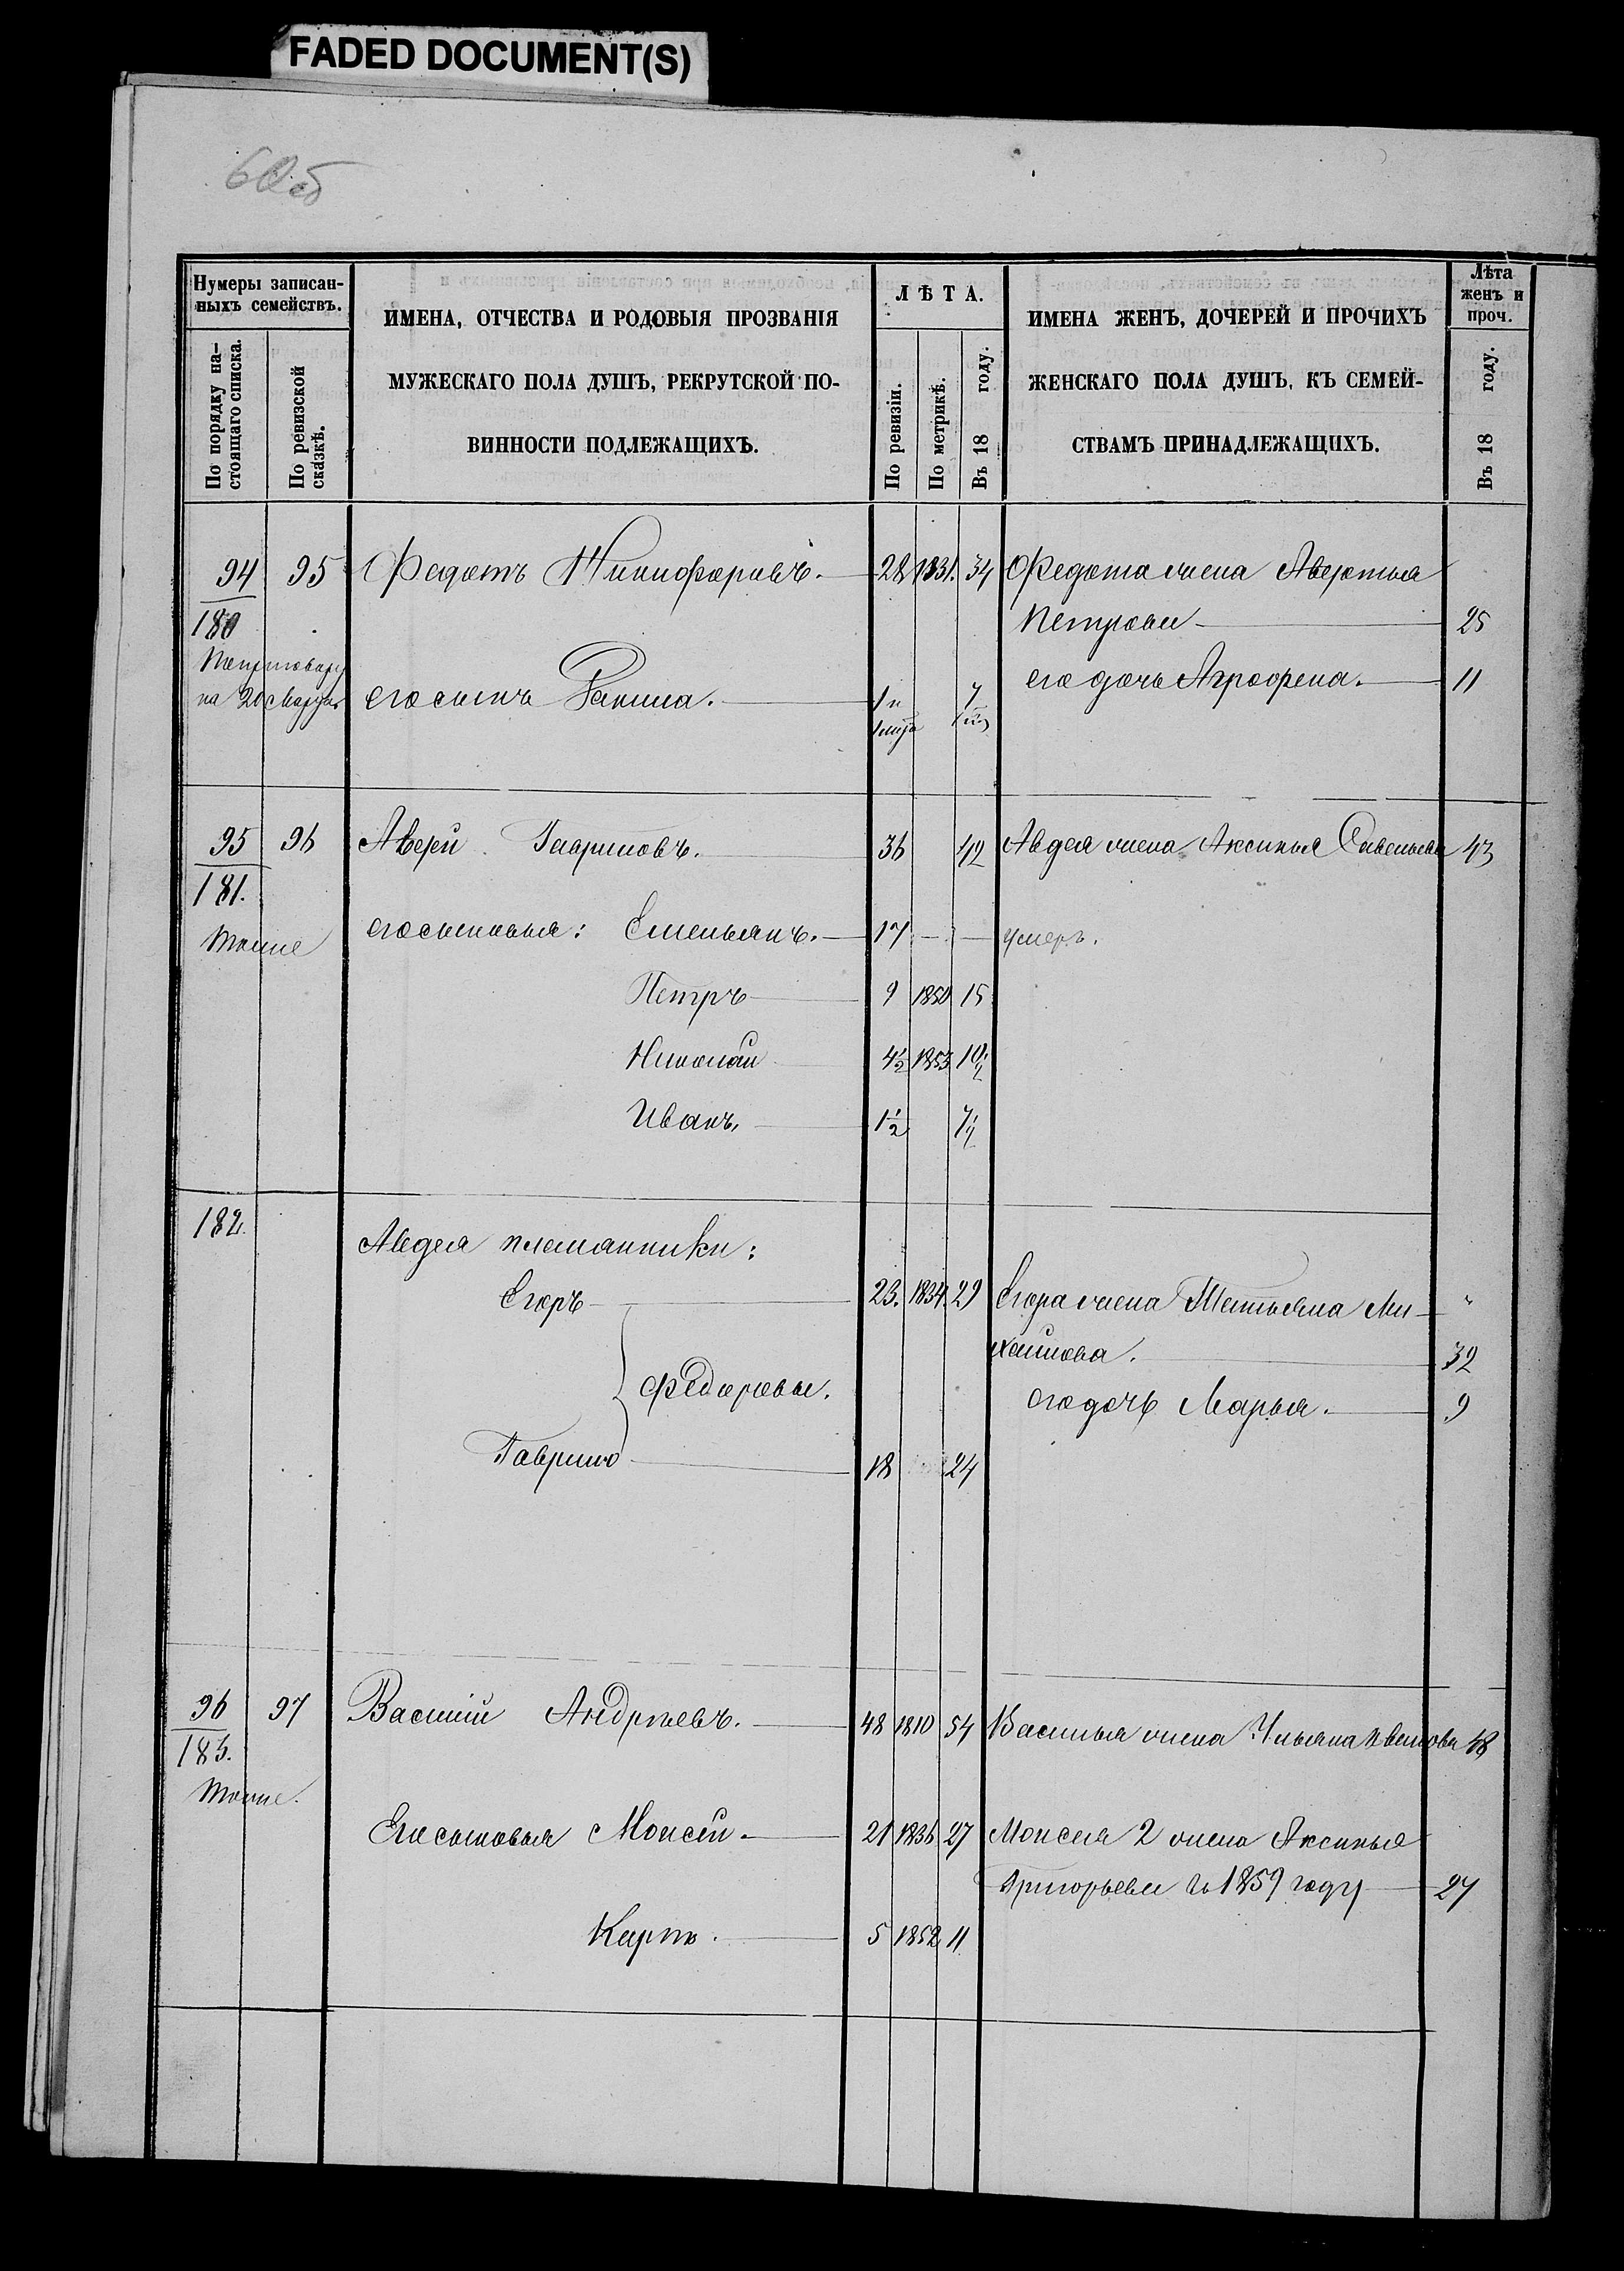 FADED DOCUMENT(S)
60об
Нумеры записан-
ныхъ семействъ.
По порядку на-
стоящаго списка.
По ревизской
сказкѣ.
ИМЕНА, ОТЧЕСТВА И РОДОВЫЯ ПРОЗВАНІЯ
МУЖЕСКАГО ПОЛА ДУШЪ, РЕКРУТСКОЙ ПО-
ВИННОСТИ ПОДЛЕЖАЩИХЪ.
ЛѢТА.
По ревизіи.
По метрикѣ.
Въ 18 году.
ИМЕНА ЖЕНЪ, ДОЧЕРЕЙ И ПРОЧИХЪ
ЖЕНСКАГО ПОЛА ДУШЪ, КЪ СЕМЕЙ-
СТВАМЪ ПРИНАДЛЕЖАЩИХЪ.
Лѣта
женъ и
проч.
Въ 18 году.
94 95 Федотъ Никифоровъ. 28 1831. 34 Федота жена
180 Петрова 25
на 20 его сынъ 1 н 7 его дочь Агрофена. 11
95 96 Гавриловъ. 36 42 Авдея жена Аксинья Савельева 43
181.
тоже его сыновья: Емельянъ. 17 — — умеръ.
Петръ 9 1850 15
Николай 4½ 1853 10½
Иванъ. 1½ 7½
182. Авдея племянники:
Егоръ 23. 1834. 29 Егора жена Татьяна Ми-
хайлова. 32
Федоровы. его дочь Марья. 9
Гаврило 18 24
96 97 Василій Андрѣевъ. 48 1810 54 Василья жена Ульяна 48
183.
тоже.
Его сыновья Моисей. 21 1836 27 Моисея 2 жена Аксинья
Григорьева въ 1859 году 27
Карпъ. 5 1852 11